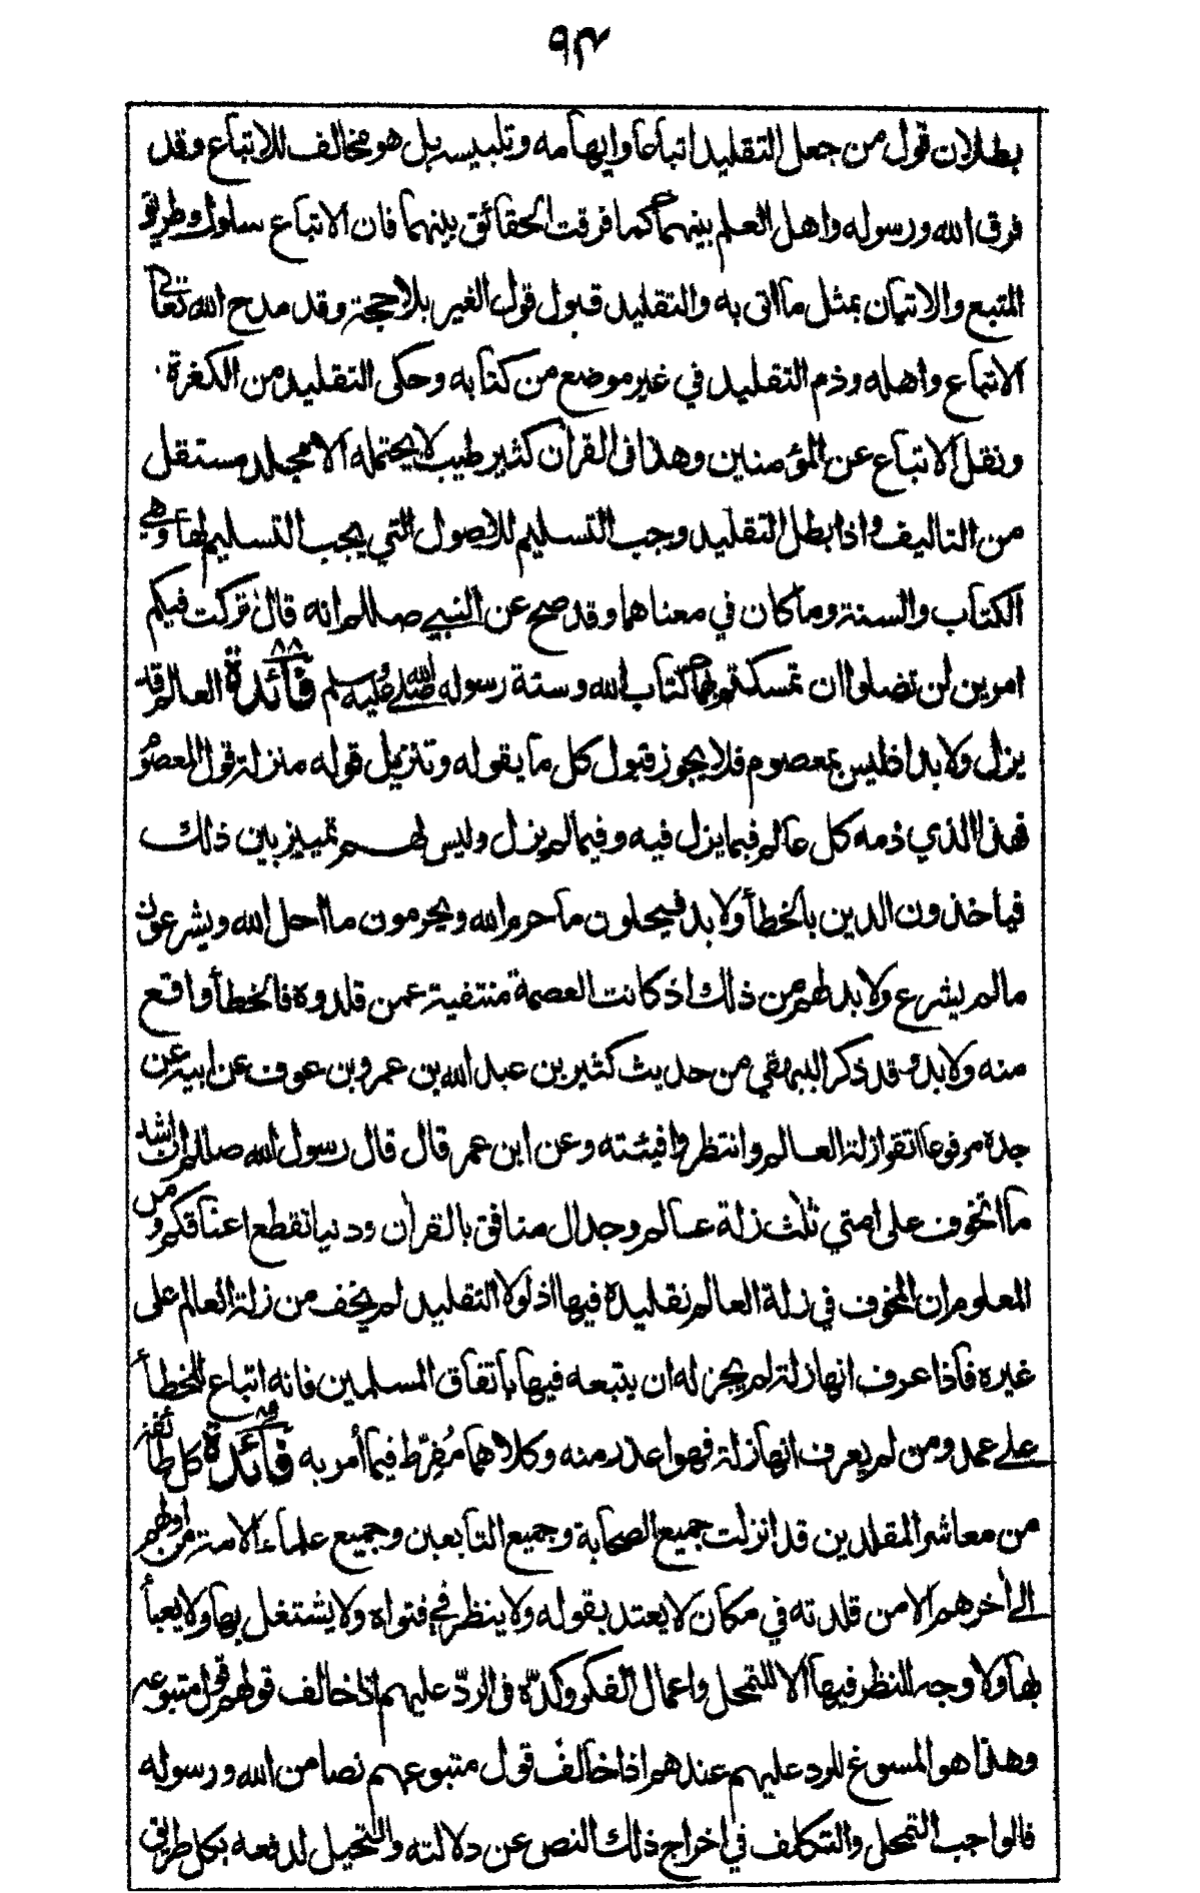 ٩٣
بطلان قول من جعل التقليد اتباعا وايهامه وتلبيسه بل هو مخالف للاتباع وقد
فرق الله ورسوله واهل العلم بينهما كما فرقت الحقائق بينهما فان الاتباع سلوك طريق
المتبع والاتيان بمثل ما اتى به والتقليد قبول قول الغير بلا حجة وقد مدح الله تعالى
الاتباع واهله وذم التقليد في غير موضع من كتابه وحكى التقليد من الكفرة
ونقل الاتباع عن المؤمنين وهذا فى القرآن كثير طيب لا يحتمله الا مجلد مستقل
من التاليف واذا بطل التقليد وجب التسليم للاصول التي يجب التسليم لها وهي
الكتاب والسنة وما كان في معناهما وقد صح عن النبي صللم انه قال تركت فيكم
امرين لن تضلوا ان تمسكتم بهما كتاب الله وسنة رسوله صلى الله عليه وسلم فائدة ٨٨ العالم قد
يزل ولا بد اذ ليس بمعصوم فلا يجوز قبول كل ما يقوله وتنزيل قوله منزلة قول المعصوم
فهذا الذي ذمه كل عالم فيما يزل فيه وفيما لم يزل وليس لهم تمييز بين ذلك
فيأخذون الدين بالخطأ ولا بد فيحلون ما حرم الله ويحرمون ما احل الله ويشرعون
ما لم يشرع ولا بد لهم من ذلك اذ كانت العصمة منتفية عمن قلدوه فالخطأ واقع
منه ولا بد وقد ذكر البيهقي من حديث كثير بن عبد الله بن عمرو بن عوف عن ابيه عن
جده مرفوعا اتقوا زلة العالم وانتظروا فيئته وعن ابن عمر قال قال رسول الله صللم ان اشد
ما اتخوف على امتي ثلث زلة عالم وجدال منافق بالقرآن ودنيا تقطع اعناقكم ومن
المعلوم ان المخوف في زلة العالم تقليده فيها اذ لولا التقليد لم يخف من زلة العالم على
غيره فاذا عرف انها زلة لم يجز له ان يتبعه فيها باتفاق المسلمين فانه اتباع للخطأ
على عمد ومن لم يعرف انها زلة فهو اعذر منه وكلاهما مُفرّط فيما أمر به فائدة ٨٩ كل طائفة
من معاشر المقلدين قد انزلت جميع الصحابة وجميع التابعين وجميع علماء الامة من اولهم
الى آخرهم الا من قلدته في مكان لا يعتد بقوله ولا ينظر في فتواه ولا يشتغل بها ولا يعبأ
بها ولا وجه للنظر فيها الا للتمحل واعمال الفكر وكدّه فى الردّ عليهم اذا خالف قولهم قول متبوعه
وهذا هو المسوغ للرد عليهم عندهم اذا خالف قول متبوعهم نصا من الله ورسوله
فالواجب التمحل والتكلف في اخراج ذلك النص عن دلالته والتحيل لدفعه بكل طريق